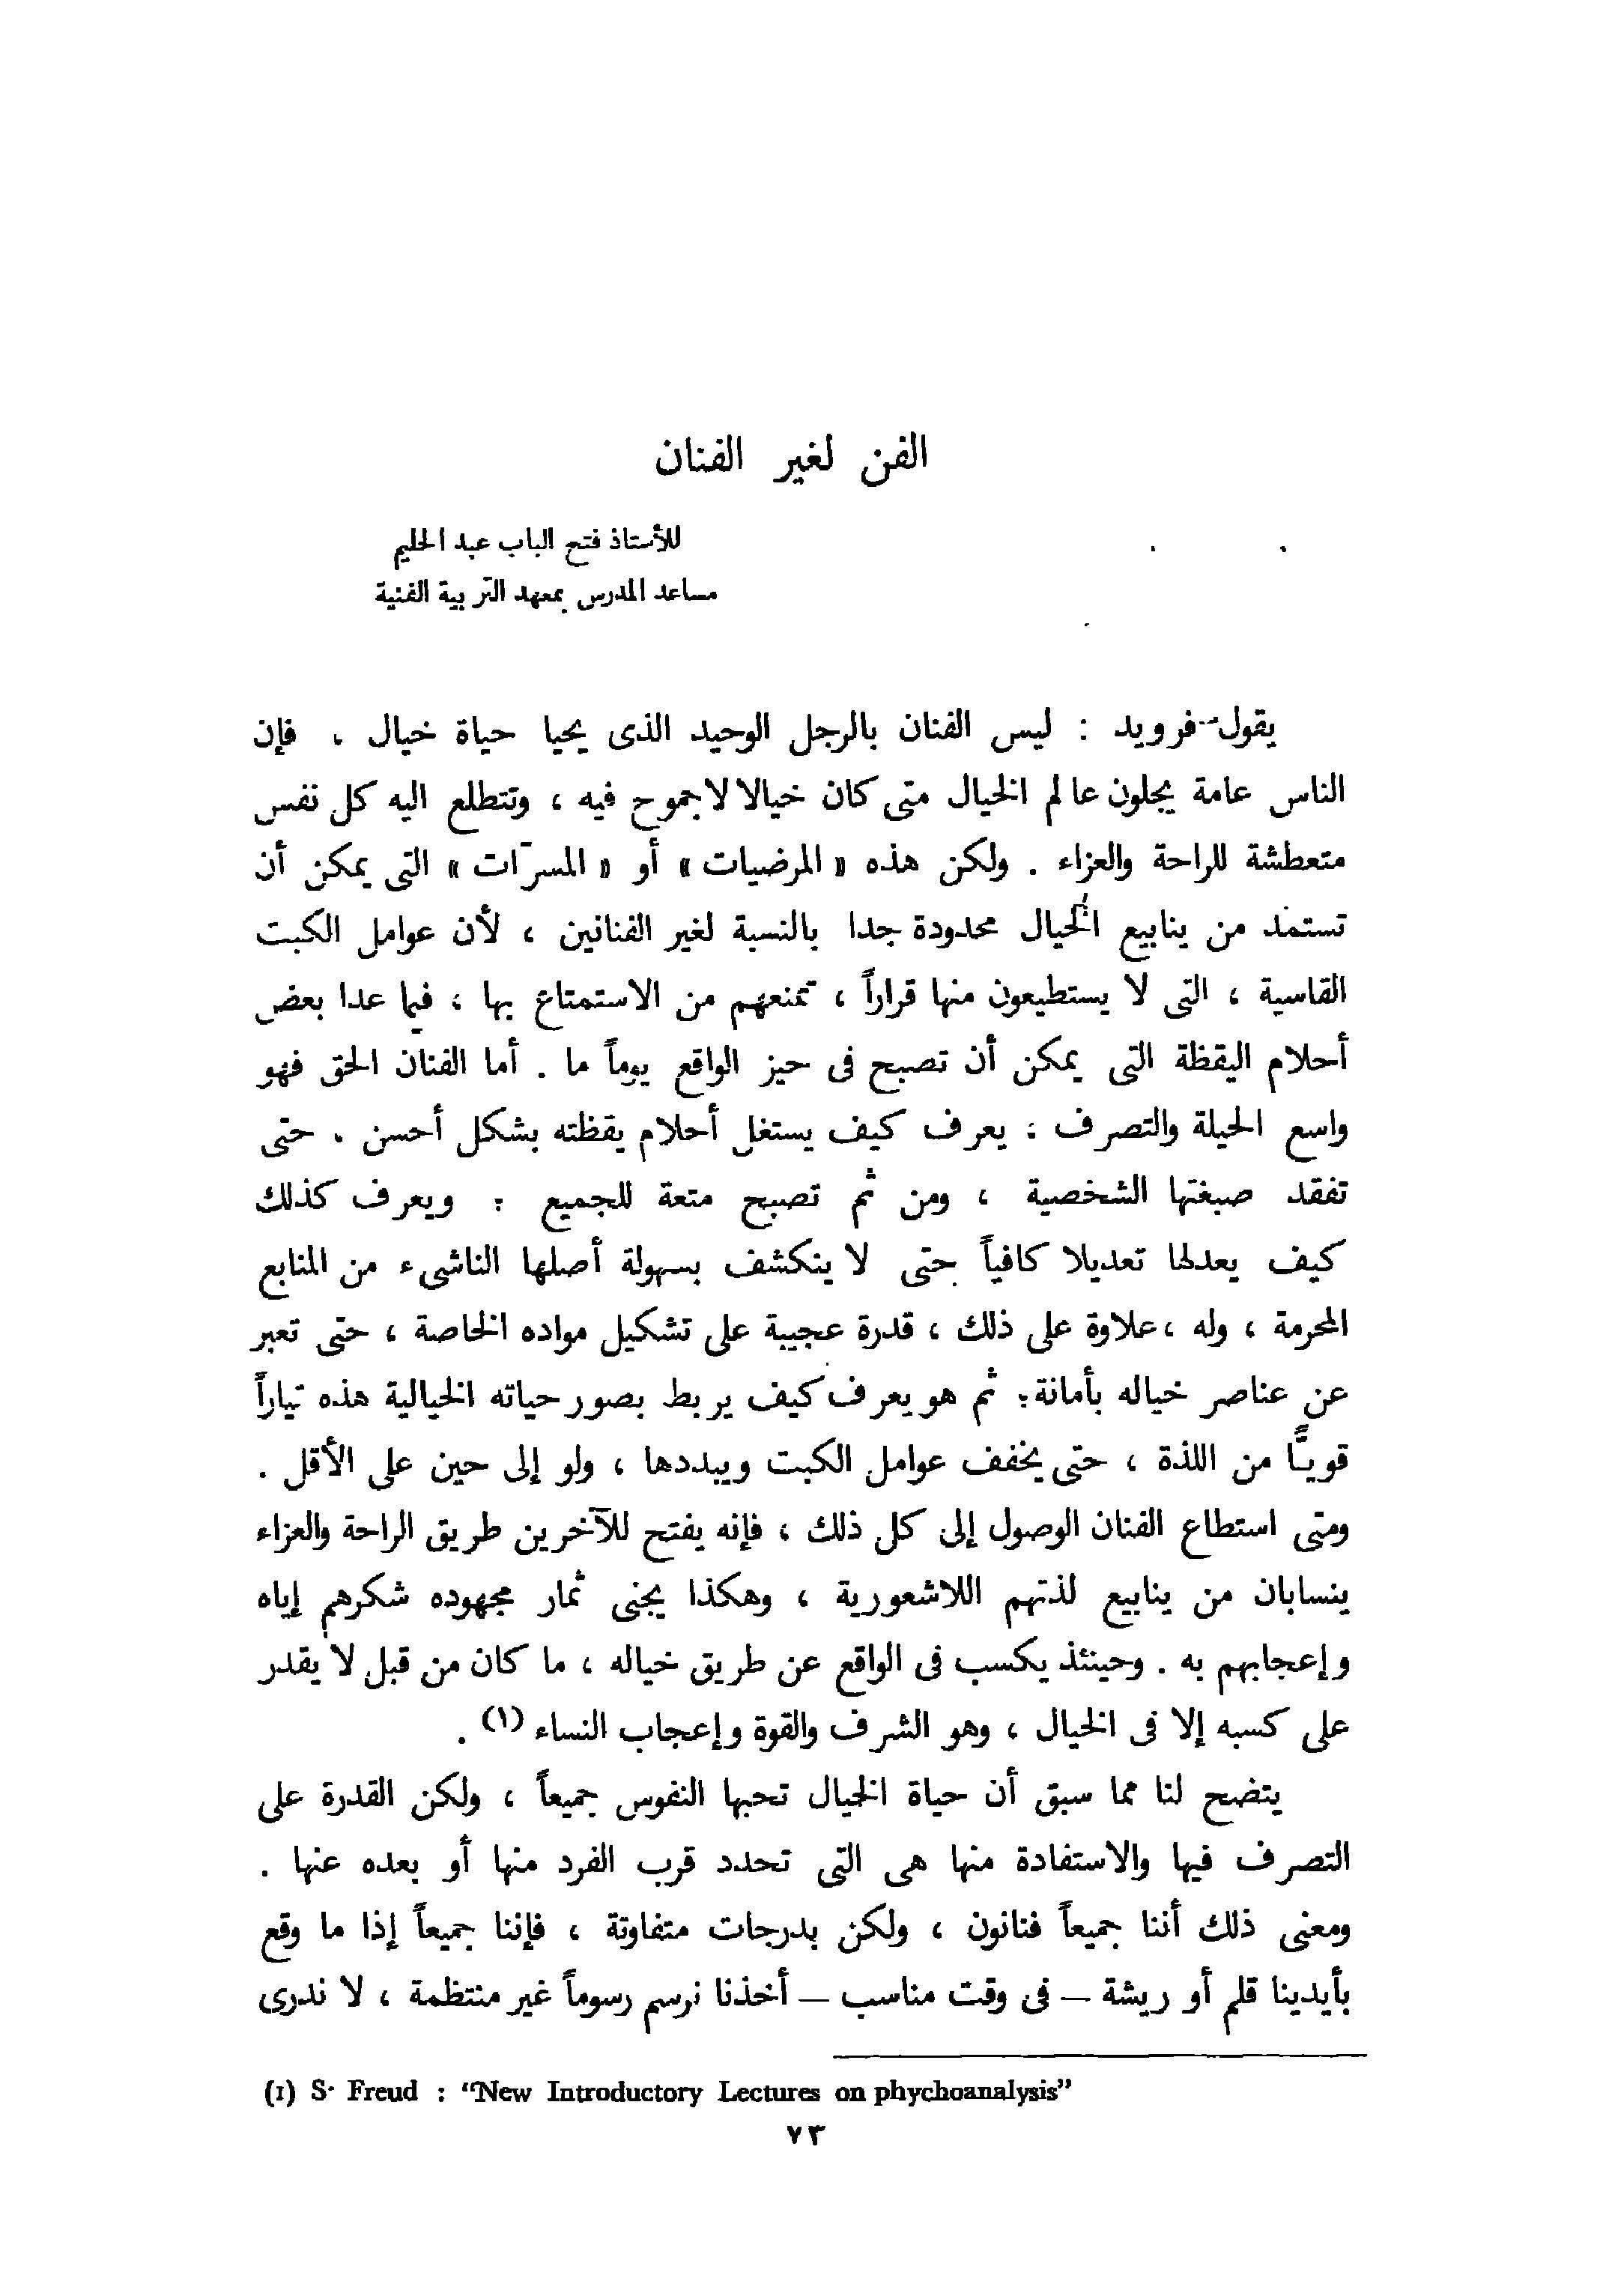 الفن لغير الفنان
للأستاذ فتح الباب عبد الحليم
مساعد المدرس بمعهد التربية الفنية
يقول فرويد : ليس الفنان بالرجل الوحيد الذى يحيا حياة خيال . فإن
الناس عامة يجلون عالم الخيال متى كان خيالا لا جموح فيه ، وتتطلع اليه كل نفس
متعطشة للراحة والعزاء . ولكن هذه « المرضيات » أو « المسرّات » التى يمكن أن
تستمد من ينابيع الخيال محدودة جدا بالنسبة لغير الفنانين ، لأن عوامل الكبت
القاسية ، التى لا يستطيعون منها قراراً ، تمنعهم من الاستمتاع بها ، فيما عدا بعض
أحلام اليقظة التى يمكن أن تصبح فى حيز الواقع يوماً ما . أما الفنان الحق فهو
واسع الحيلة والتصرف : يعرف كيف يستغل أحلام يقظته بشكل أحسن . حتى
تفقد صبغتها الشخصية ، ومن ثم تصبح متعة للجميع : ويعرف كذلك
كيف يعدلها تعديلا كافياً حتى لا ينكشف بسهولة أصلها الناشىء من المنابع
المحرمة ، وله ، علاوة على ذلك ، قدرة عجيبة على تشكيل مواده الخاصة ، حتى تعبر
عن عناصر خياله بأمانة : ثم هو يعرف كيف يربط بصور حياته الخيالية هذه تياراً
قويًّا من اللذة ، حتى يخفف عوامل الكبت ويبددها ، ولو إلى حين على الأقل .
ومتى استطاع الفنان الوصول إلى كل ذلك ، فإنه يفتح للآخرين طريق الراحة والعزاء
ينسابان من ينابيع لذتهم اللاشعورية ، وهكذا يجنى ثمار مجهوده شكرهم إياه
وإعجابهم به . وحينئذ يكسب فى الواقع عن طريق خياله ، ما كان من قبل لا يقدر
على كسبه إلا فى الخيال ، وهو الشرف والقوة وإعجاب النساء (١) .
يتضح لنا مما سبق أن حياة الخيال تحبها النفوس جميعاً ، ولكن القدرة على
التصرف فيها والاستفادة منها هى التى تحدد قرب الفرد منها أو بعده عنها .
ومعنى ذلك أننا جميعاً فنانون ، ولكن بدرجات متفاوتة ، فإننا جميعاً إذا ما وقع
بأيدينا قلم أو ريشة – فى وقت مناسب – أخذنا نرسم رسوماً غير منتظمة ، لا ندرى
(1) S. Freud : “New Introductory Lectures on phychoanalysis”
٧٣